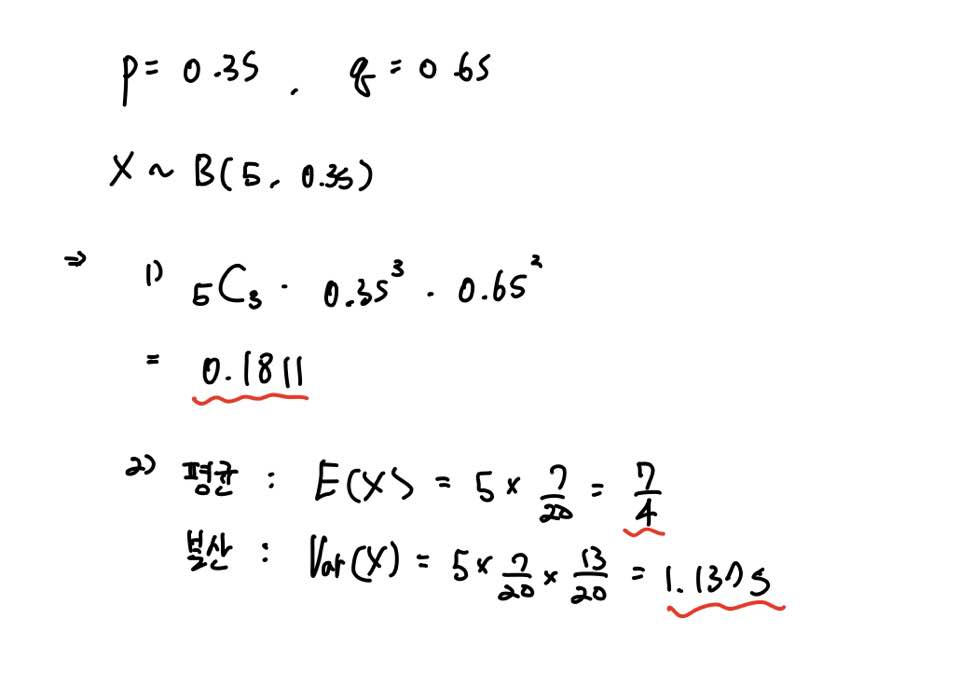 p = 0.35 , q = 0.65
X ~ B(5, 0.35)
⇒ 1) ₅C₃ · 0.35³ · 0.65²
= 0.1811
2) 평균 : E(X) = 5 × 7/20 = 7/4
분산 : Var(X) = 5 × 7/20 × 13/20 = 1.1375